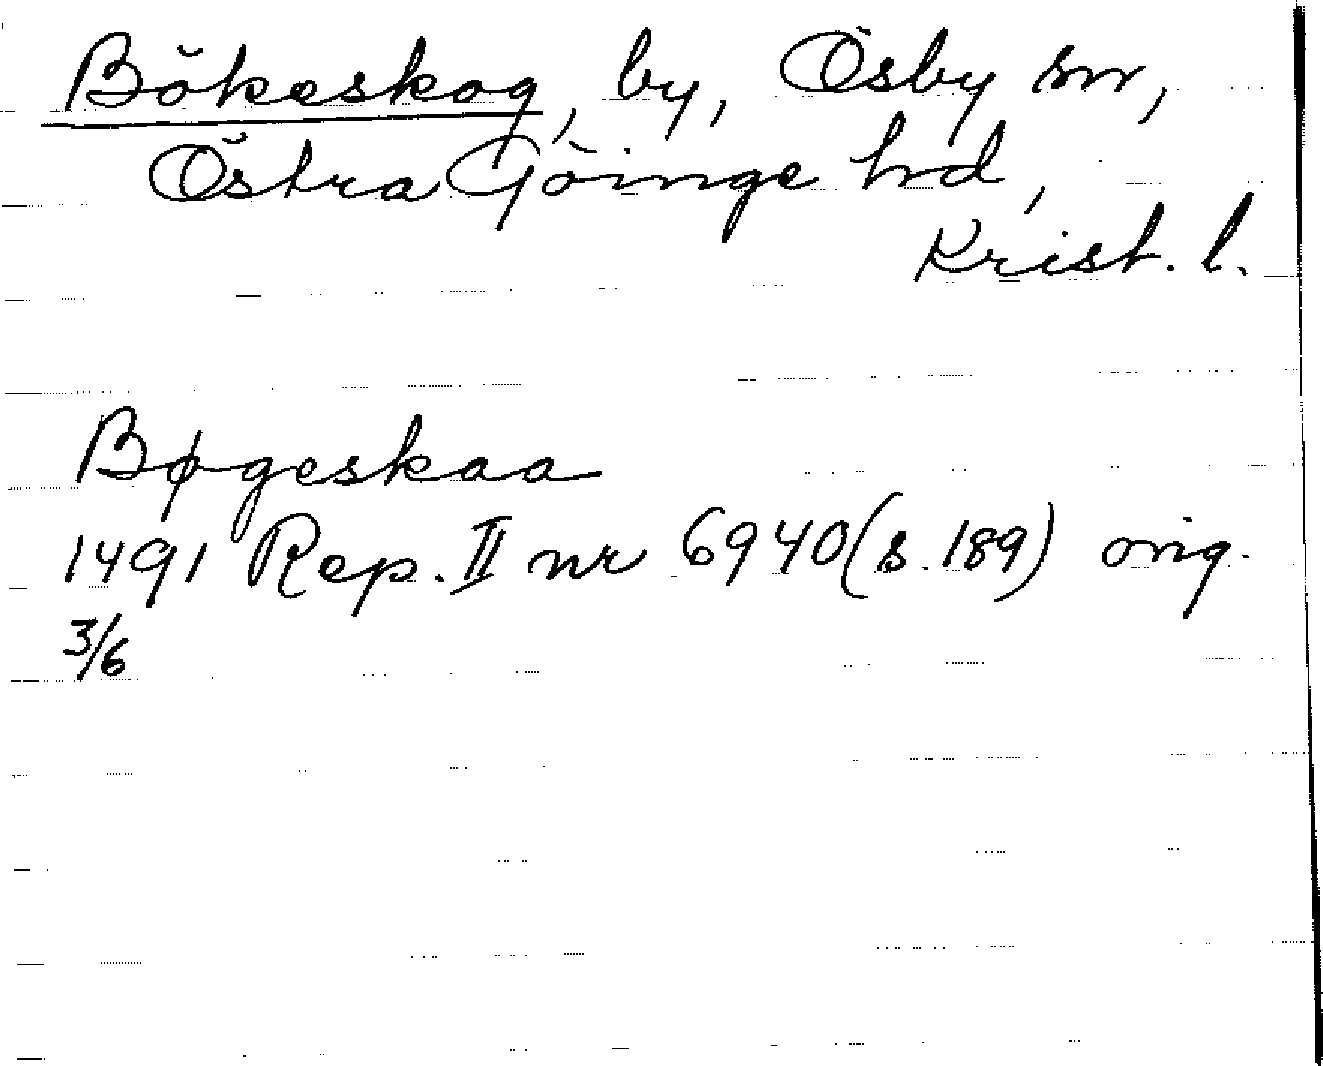 Bökeskog, by, Ösby sn,
Östra Göinge hd,
Krist. l.
Bøgeskaa
1491 Rep. II nr 6940 (s. 189) orig.
3/6